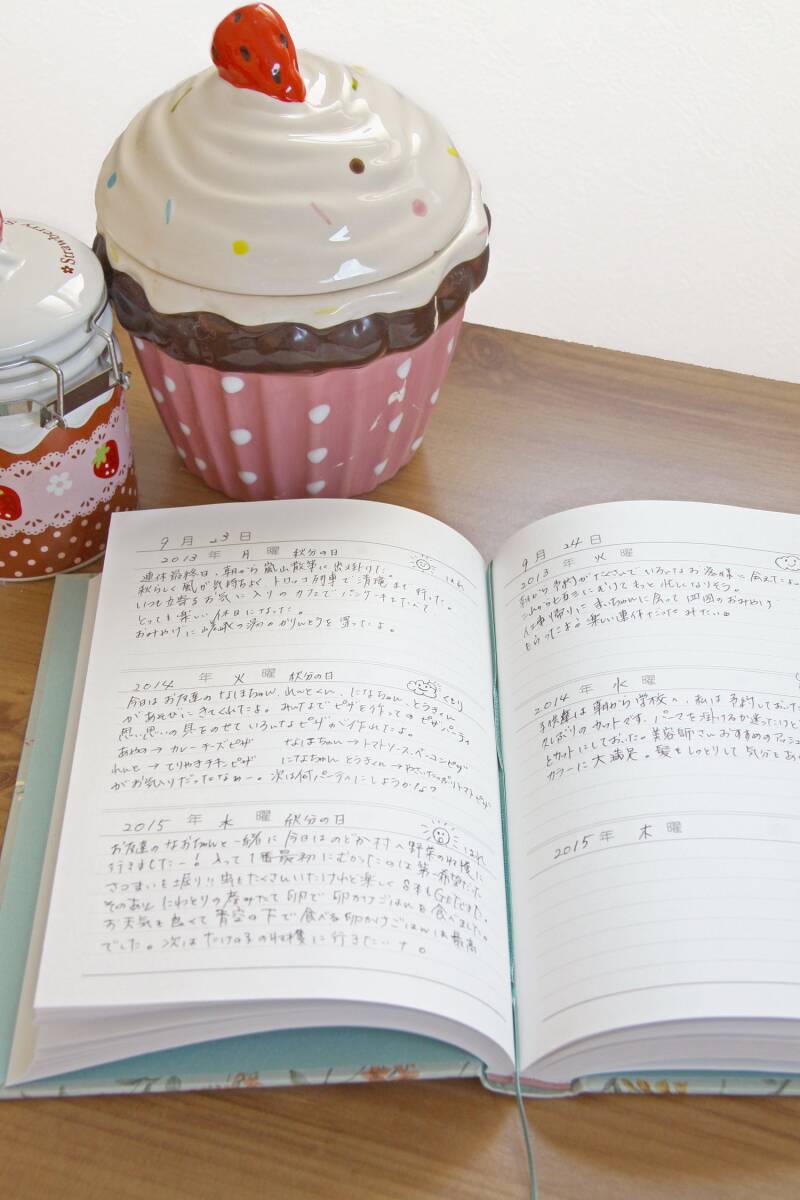 Strawberry
9月23日
2013年 月曜 秋分の日
はれ
連休最終日、朝から嵐山散策に出掛けた。
秋らしく風が気持ちよく、トロッコ列車で清滝まで行った。
いつも立寄るお気に入りのカフェでパンケーキたべて
とっても楽しい休日になった。
おみやげに嵯峨の湯のかりんとうを買ったよ。
2014年 火曜 秋分の日
くもり
今日はお友達のなしまちゃん、れんとくん、になちゃん、とうきくん
があそびにきてくれたよ。みんなでピザを作ってのピザパーティ
思い思いの具をのせていろいろなピザが作れたよ。
あやの→カレーチーズピザ なほちゃん→トマトソースベーコンピザ
れんと→てりやきチキンピザ になちゃん とうきくん→やさいたっぷりトマトピザ
がお気入りだったなぁー。次は何パーティーにしようかな?
2015年 水曜 秋分の日
はれ
お友達のなおちゃんと一緒に今日はのどか村へ野菜の収穫に
行きましたー!入って1番最初にむかったのは第一希望だった
さつまいも堀り!!虫もたくさんいたけれど楽しく8本もGetできた。
そのあと、にわとりの産みたて卵で卵かけごはんを食べました。
お天気も良くて青空の下で食べる卵かけごはんは最高
でした。次はたけのこの収穫に行きたいナ。
9月24日
2013年 火曜
朝から予約がたくさんでいろんなお客様に会えた
仕事帰りにまいちゃんに会って四国のおみやげ
もらったよ!楽しい連休だったみたい。
2014年 水曜
子供達は朝から学校へ、私は予約しておいた
久しぶりのカットです。パーマを掛けるか迷ったけど
とカットにしておいた。美容師さんおすすめのアッシュ
カラーに大満足。髪もしっとりして気分もあ
2015年 木曜